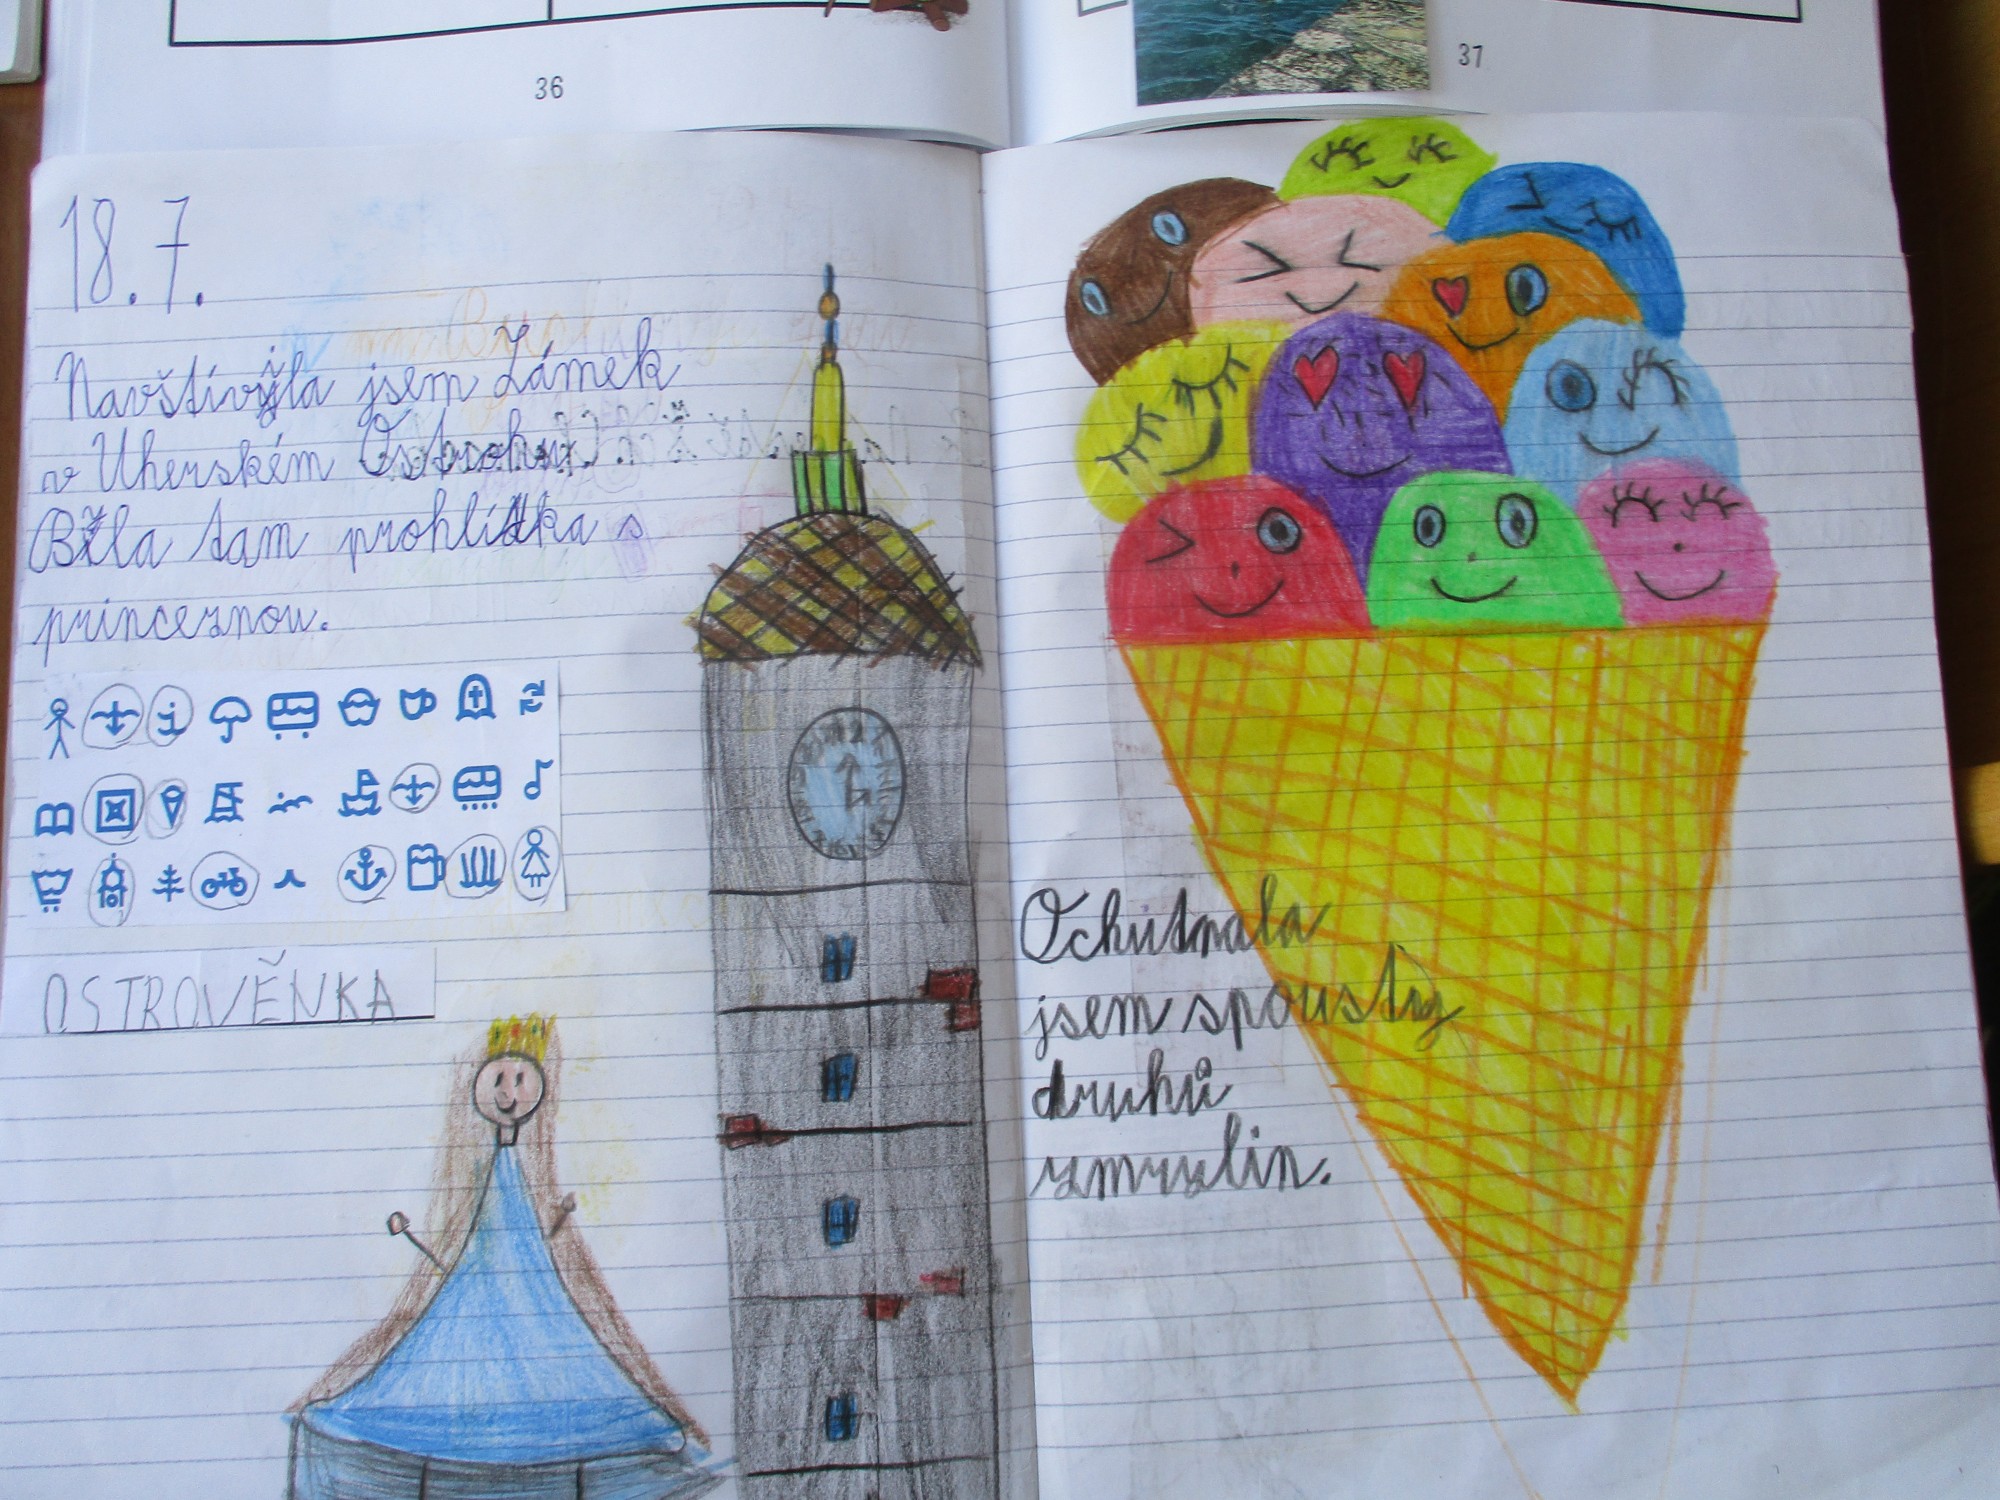 36
37
18.7.
Navštívila jsem Zámek
v Uherském Ostrohu.
Byla tam prohlídka s
princeznou.
OSTROVĚNKA
Ochutnala
jsem spousty
druhů
zmrzlin.